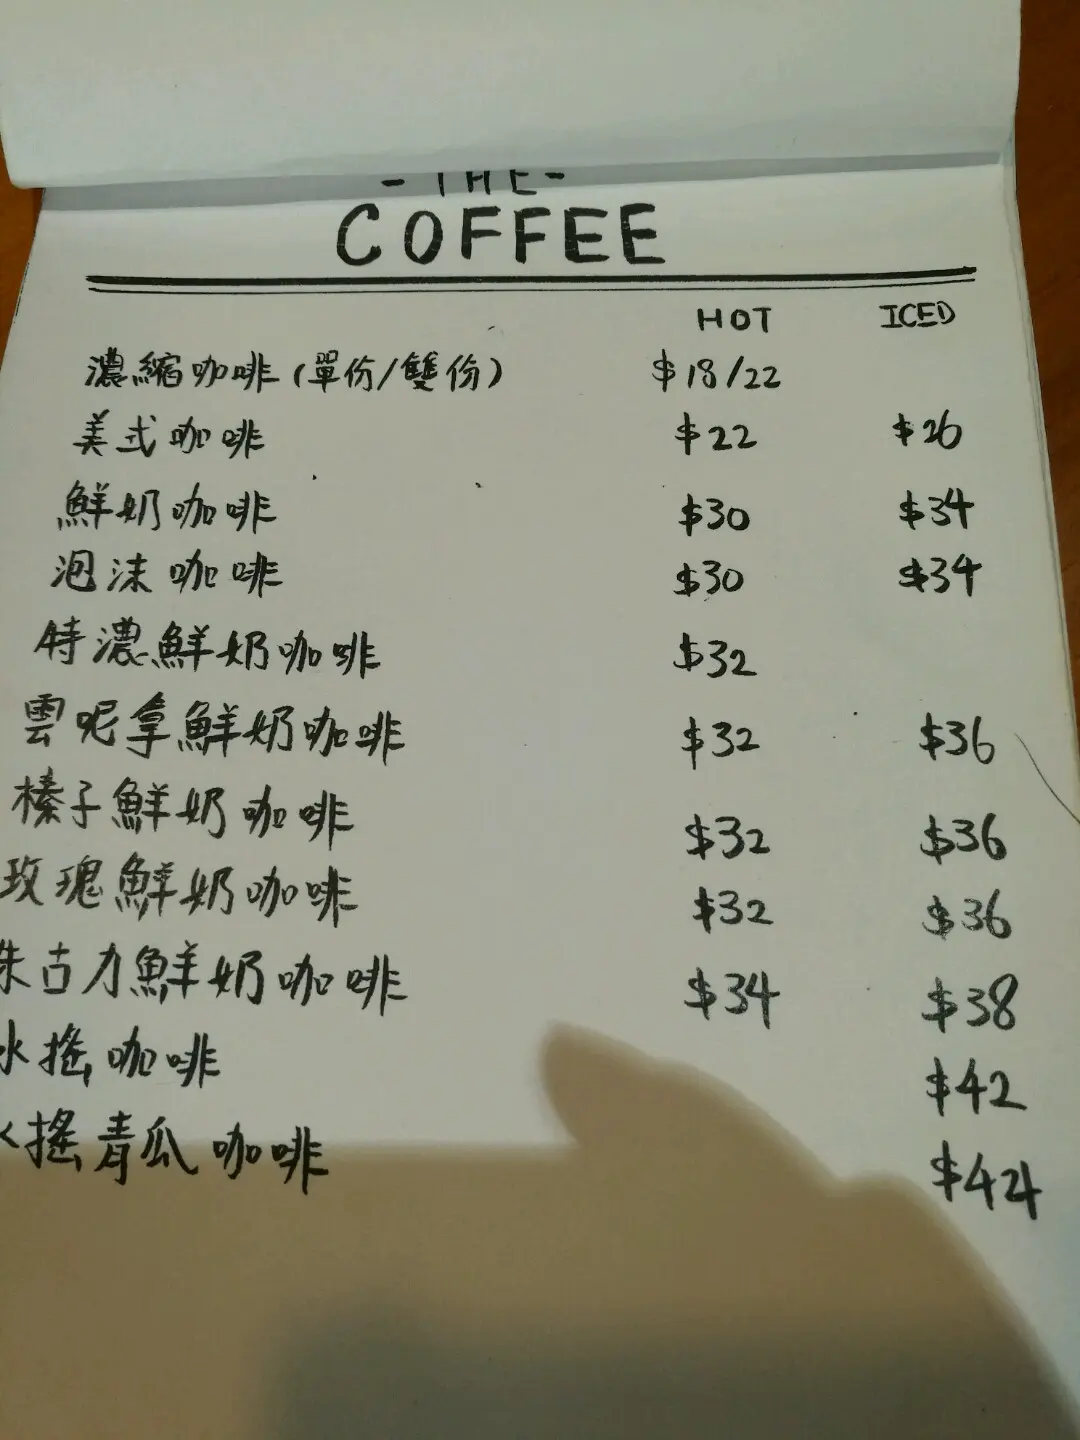 - THE -
COFFEE
HOT ICED
濃縮咖啡(單份/雙份) $18/22
美式咖啡 $22 $26
鮮奶咖啡 $30 $34
泡沫咖啡 $30 $34
特濃鮮奶咖啡 $32
雲呢拿鮮奶咖啡 $32 $36
榛子鮮奶咖啡 $32 $36
玫瑰鮮奶咖啡 $32 $36
朱古力鮮奶咖啡 $34 $38
搖咖啡 $42
搖青瓜咖啡 $44